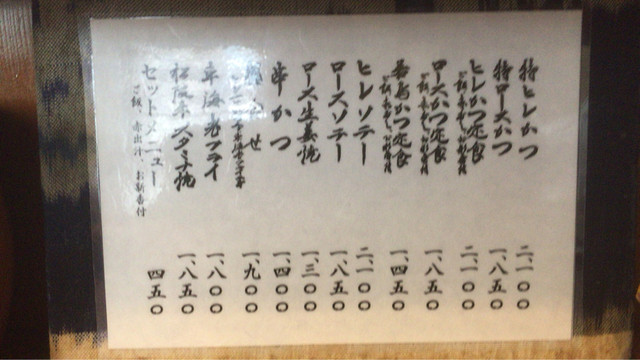 特ヒレかつ 二、一〇〇
特ロースかつ 一、八五〇
ヒレかつ定食 二、一〇〇
ロースかつ定食 一、八五〇
若鳥かつ定食 一、四五〇
ヒレソテー 二、一〇〇
ロースソテー 一、八五〇
ロース生姜焼 一、三〇〇
串かつ 一、四〇〇
一、九〇〇
車海老フライ 一、八〇〇
松阪牛スタミナ焼 一、八五〇
セットメニュー 四五〇
ご飯、赤出汁、お新香付